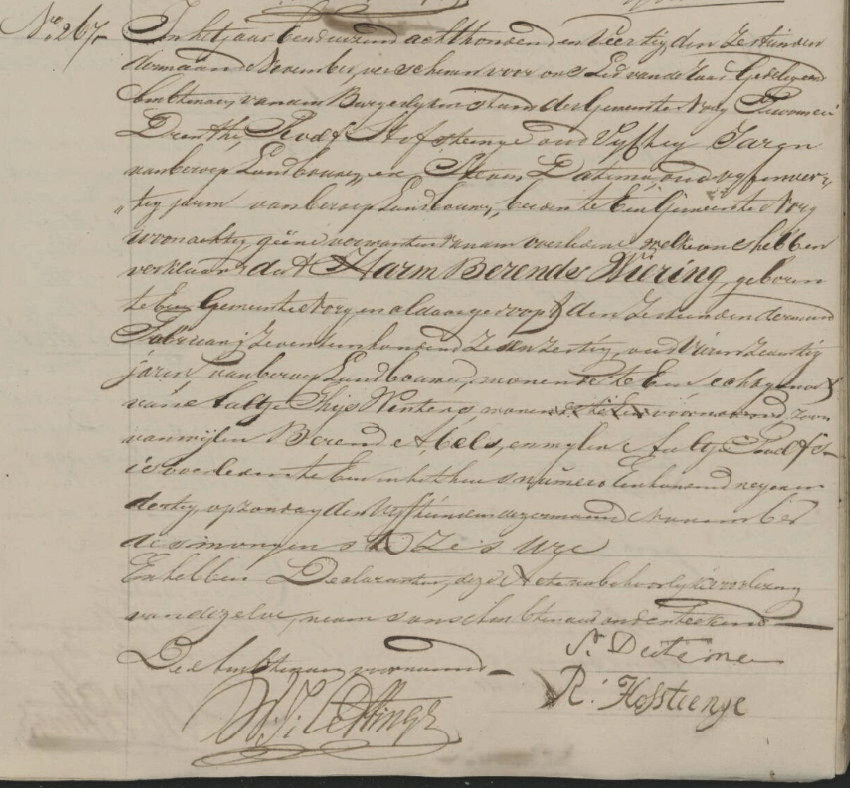 No 267.
In het jaar eenduizend achthonderd en Veertig, den Zestienden
dermaand November, verscheenen voor ons Lid van de Raad Gedelegeerd
Ambtenaar, van den Burgerlyken stand der Gemeente Norg Provincie
Drenthe, Roelf Hofsteenge oud Vyftig Jaren
van beroep Landbouwer, en oud vyf en veer,,
,,tig jaren van beroep Landbouwer, beiden te Een Gemeente Norg
woonachtig, geene verwanten van den overledene, welke ons hebben
verklaard, dat Harm Berends Wiering, geboren
te Een Gemeente Norg en aldaar gedoopt den Zestienden dermaand
Februarij Zeventienhonderd Zes en Zestig, oud Vier en Zeventig
jaren van beroep Landbouwer, wonende te Een echtgenoot
van Aaltje Thijs Winters zoon
van wijlen Berend Abels, en wylen Aaltje Roelfs
is overleden te Een in het huis numero Eenhonderd negen en
dertig, op zondag den Vyftienden dezer maand November
des morgens te Zes ure
En hebben Declaranten, deze Acte na behoorlyke voorlezing
van dezelve, nevens ons Ambtenaar onderteekend
De Ambtenaar voornoemd
R. Hofsteenge